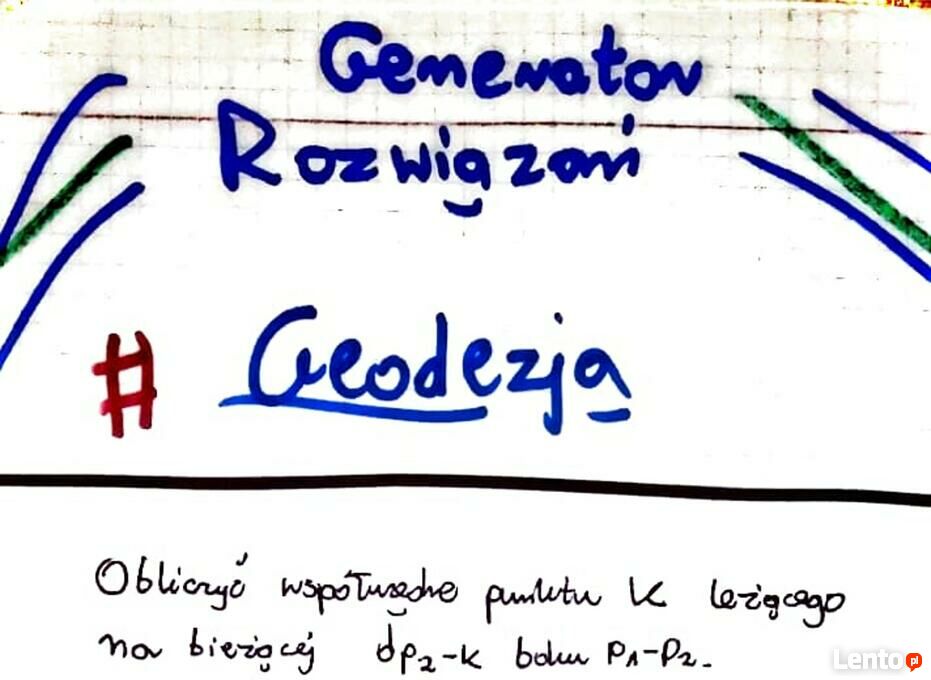 Generator
Rozwiązań
# Geodezja
Obliczyć współrzędne punktu K leżącego
na bieżącej dp2-K boku P1-P2.
Lento.pl